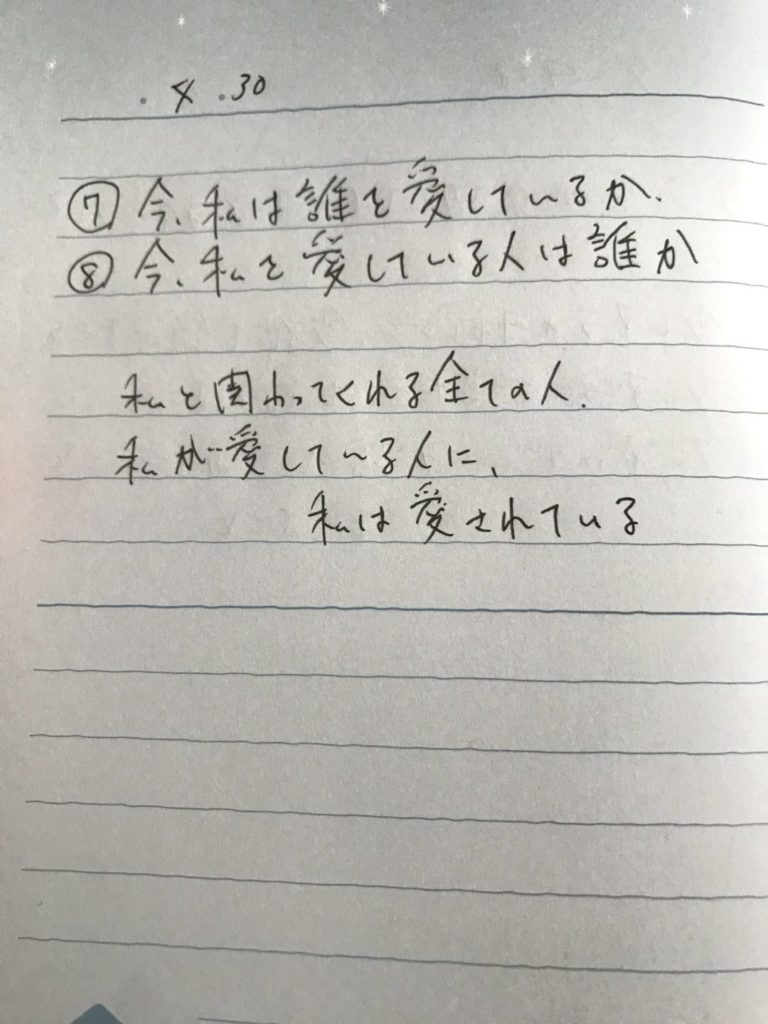 . 4 . 30
⑦ 今、私は誰を愛しているか.
⑧ 今、私を愛している人は誰か
私と関わってくれる全ての人.
私が愛している人に、
私は愛されている